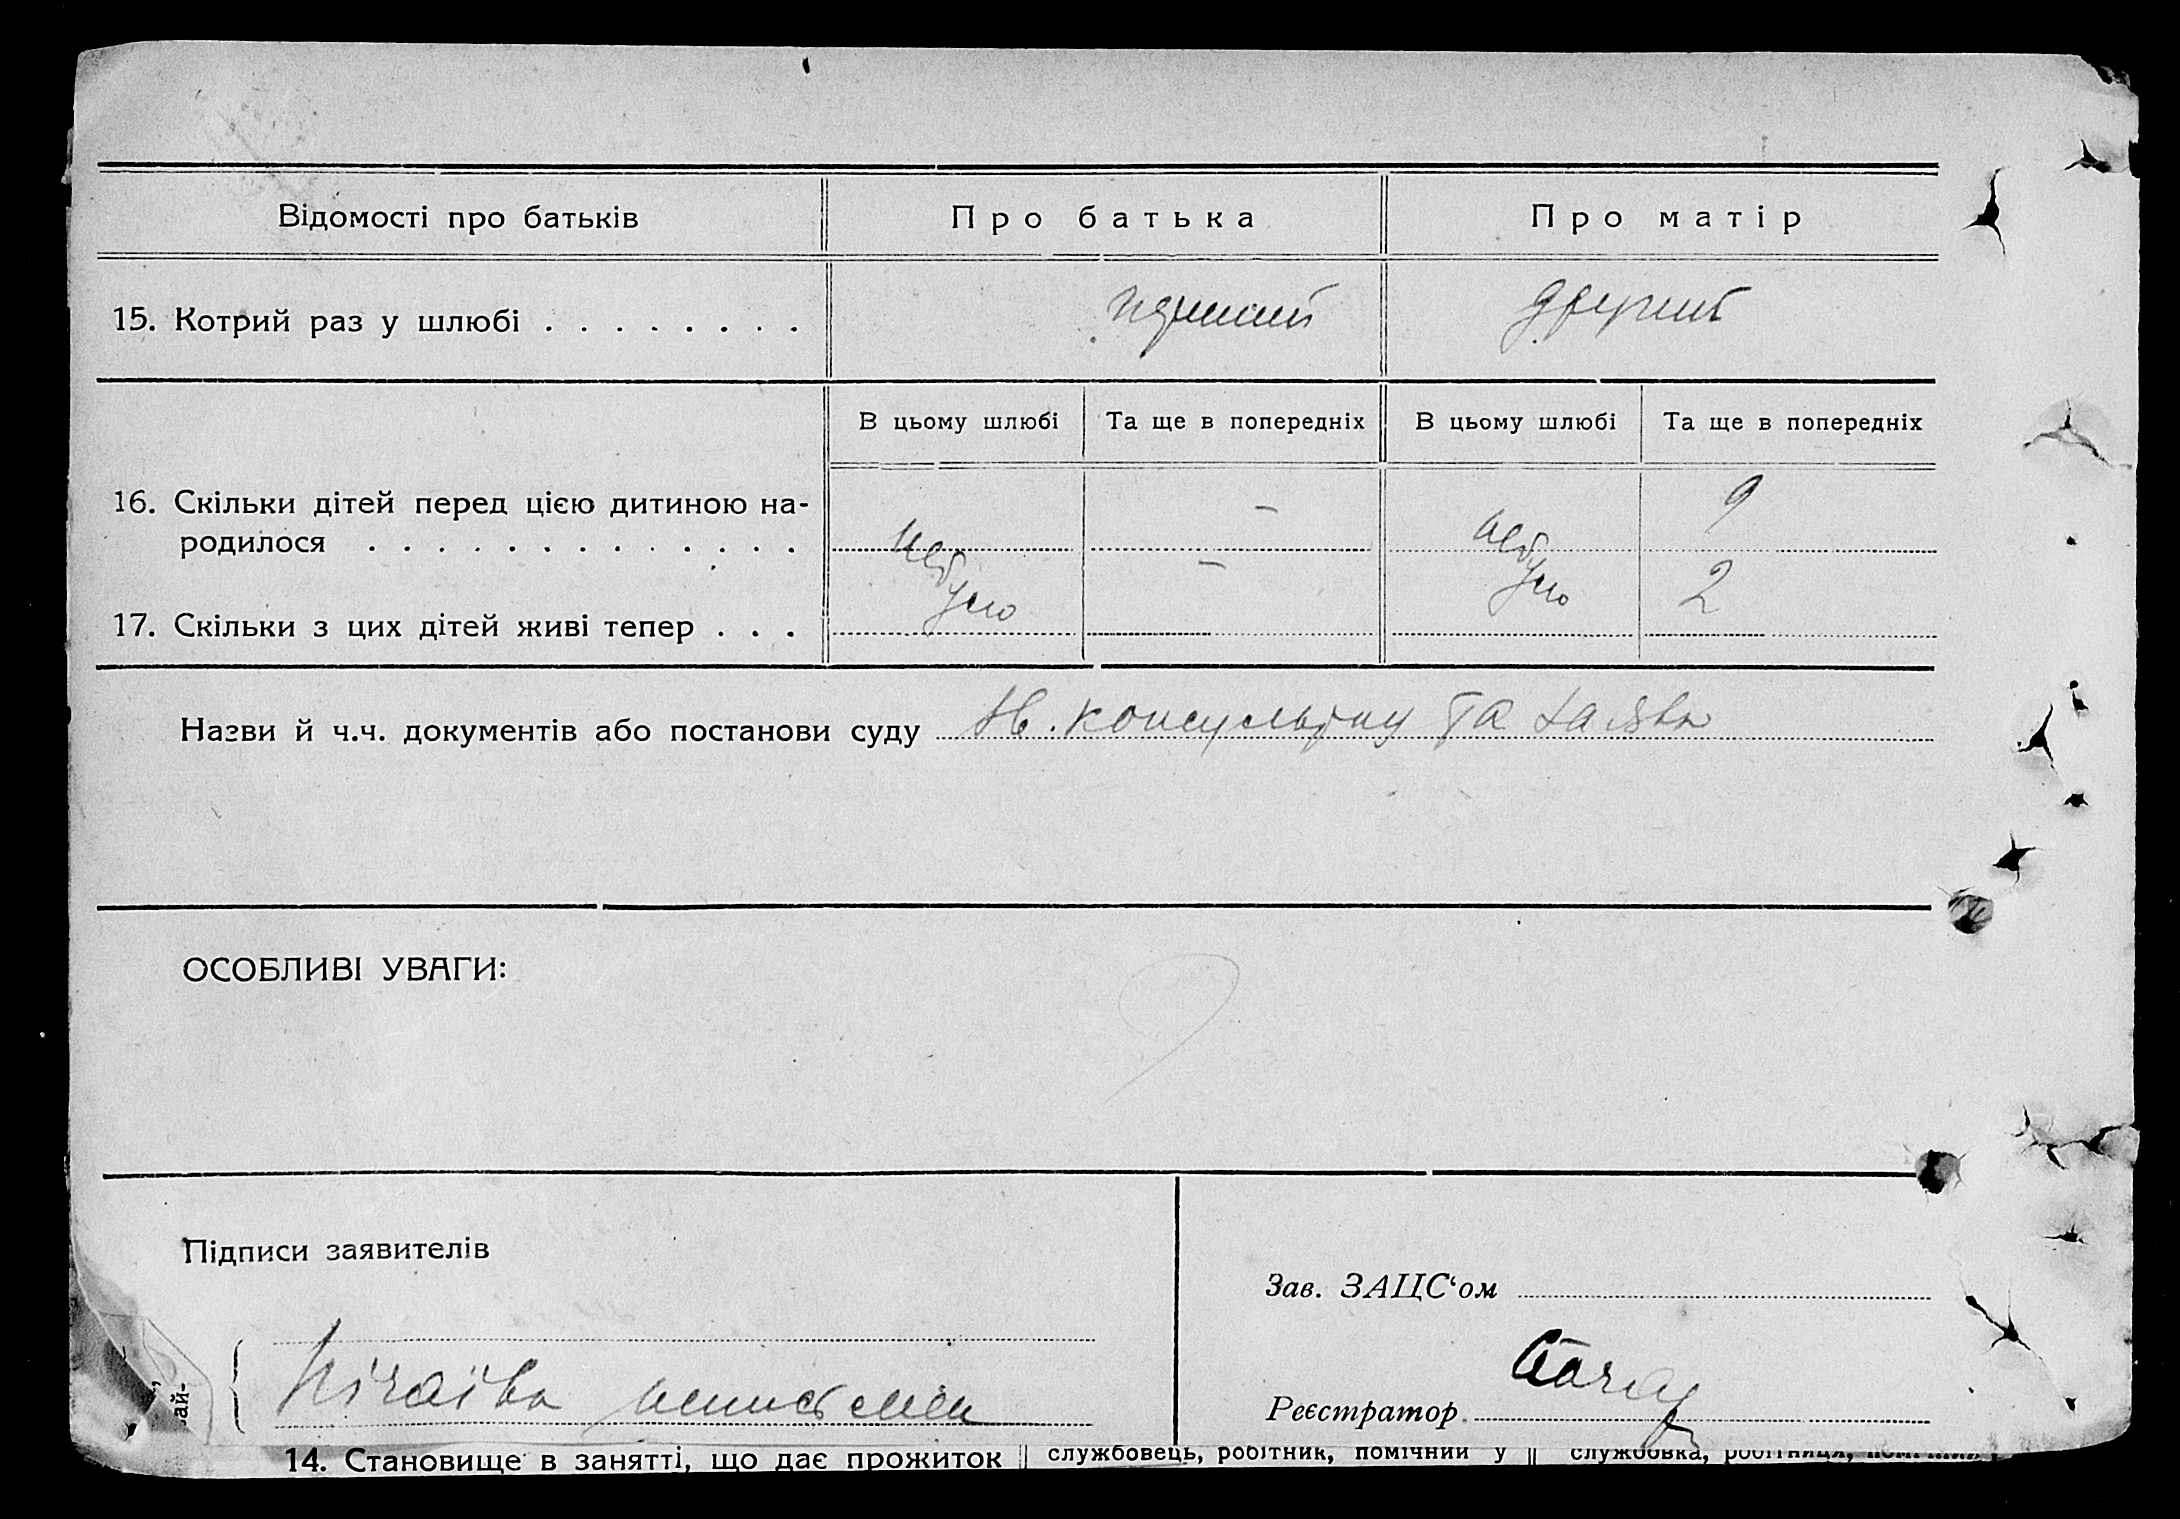 Відомості про батьків Про батька Про матір
15. Котрий раз у шлюбі . . . . . . . . перший другий
В цьому шлюбі Та ще в попередніх В цьому шлюбі Та ще в попередніх
16. Скільки дітей перед цією дитиною на-
родилося . . . . . . . . . . . . . небуло – небуло 9
17. Скільки з цих дітей живі тепер . . . – 2
Назви й ч.ч. документів або постанови суду консульт та
ОСОБЛИВІ УВАГИ:
Підписи заявителів
Зав. ЗАЦС‘ом
Реєстратор
ай-
14. Становище в занятті, що дає прожиток службовець, робітник, помічний у службовка, робітниця,